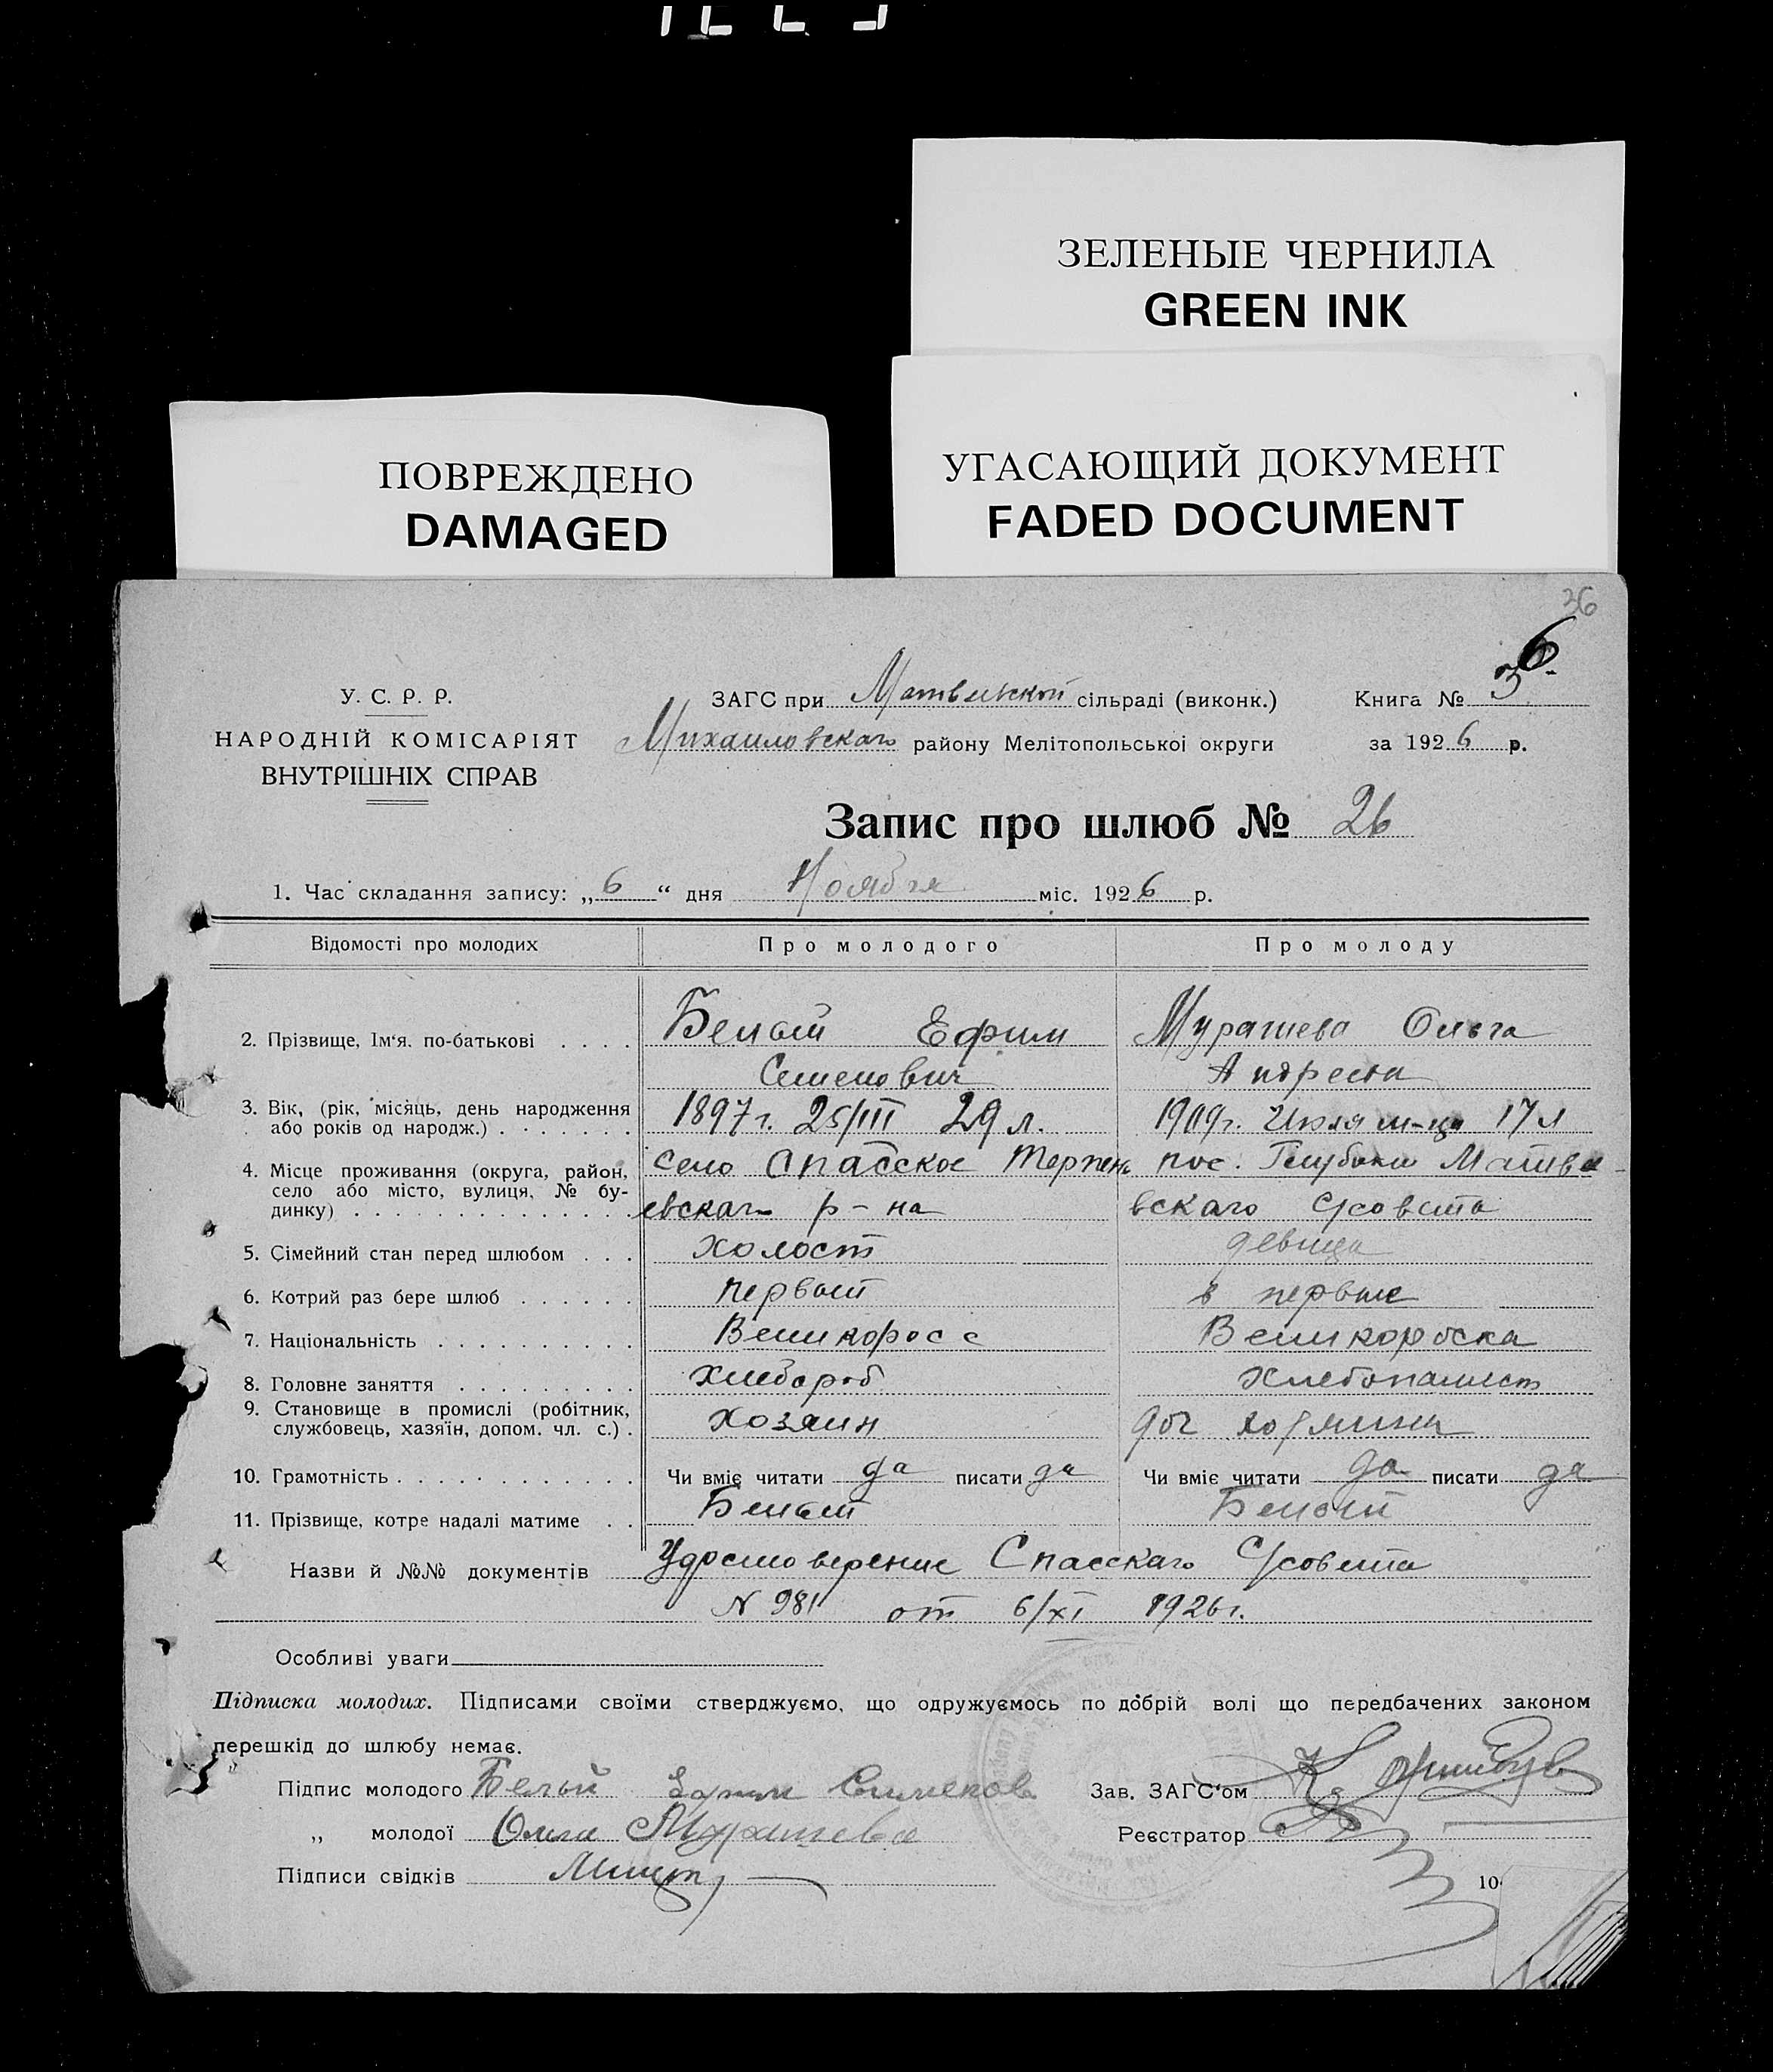 ЗЕЛЕНЫЕ ЧЕРНИЛА
GREEN INK
ПОВРЕЖДЕНО
DAMAGED
УГАСАЮЩИЙ ДОКУМЕНТ
FADED DOCUMENT
36
У. С. Р. Р.
НАРОДНІЙ КОМІСАРІЯТ
ВНУТРІШНІХ СПРАВ
ЗАГС при Матвеевской сільраді (виконк.)
Михайловскаго району Мелітопольської округи
Книга № 36
за 1926 р.
Запис про шлюб № 26
1. Час складання запису: „6“ дня Ноября міс. 1926 р.
Відомості про молодих Про молодого Про молоду
2. Прізвище, Ім'я, по-батькові . . . . Белый Ефим Мурашева Ольга
Семенович Андреевна
3. Вік, (рік, місяць, день народження
або років од народж.) . . . . . . . 1897 г. 25/III 29 л. 1909 г. Июля м-ца 17 л
4. Місце проживання (округа, район,
село або місто, вулиця, № бу-
динку) . . . . . . . . . . . . . .
село Спасское Терпень пос. Матве-
евскаго р-на вскаго с/совета
5. Сімейний стан перед шлюбом . . . холост девица
6. Котрий раз бере шлюб . . . . . . первый в первые
7. Національність . . . . . . . . . . Великоросс Великороска
8. Головне заняття . . . . . . . . . хлебороб хлебопашест
9. Становище в промислі (робітник,
службовець, хазяїн, допом. чл. с.) . хозяин доч хозяина
10. Грамотність . . . . . . . . . . . . Чи вміє читати да писати да Чи вміє читати да писати да
11. Прізвище, котре надалі матиме . . Белый Белый
Назви й №№ документів Удостоверение Спасскаго С/совета
N 981 от 6/XI 1926 г.
Особливі уваги
Підписка молодих. Підписами своїми стверджуємо, що одружуємось по добрій волі що передбачених законом
перешкід до шлюбу немає.
Підпис молодого Белый Ефим Зав. ЗАГС'ом
„ молодої Ольга Мурашева Реєстратор
Підписи свідків
10